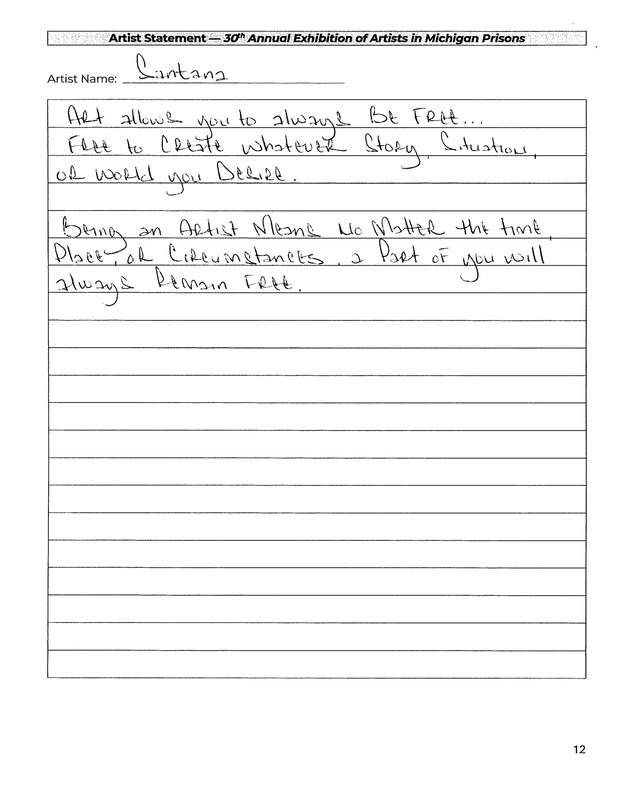 Artist Statement — 30th Annual Exhibition of Artists in Michigan Prisons
Artist Name: Santana
Art allows you to always Be Free...
Free to Create whatever Story, Situation,
or World you Desire.
Being an Artist Means No Matter the time,
Place, or Circumstances, a Part of you will
always Remain Free.
12